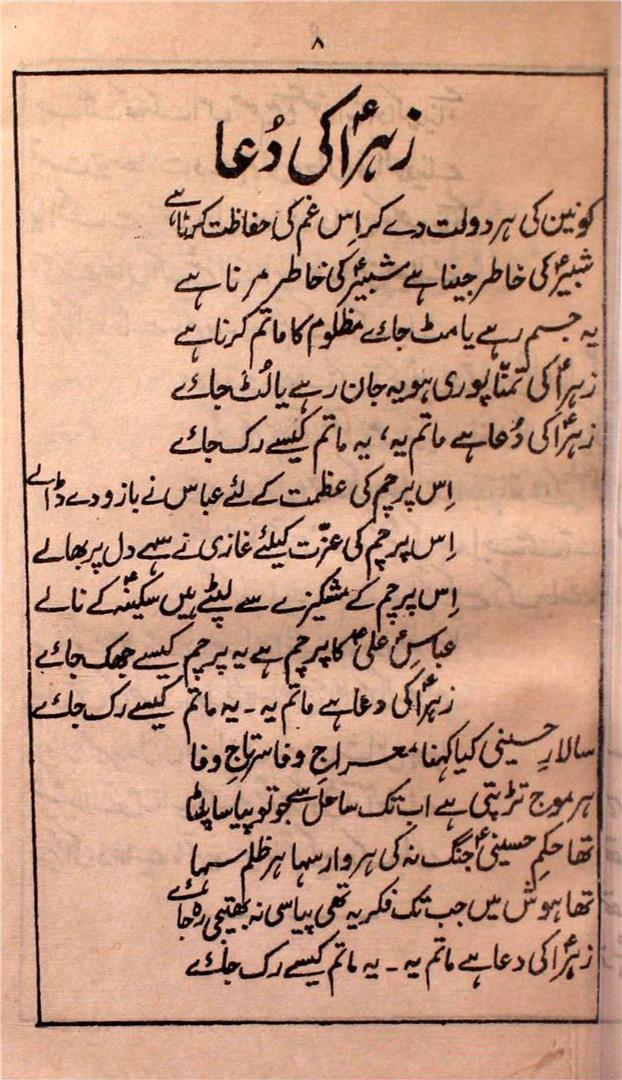 ۸
زہراؑ کی دُعا
کونین کی ہر دولت دے کر اِس غم کی حفاظت کرنا ہے
شبیرؑ کی خاطر جینا ہے شبیرؑ کی خاطر مرنا ہے
یہ جسم رہے یا مٹ جائے مظلوم کا ماتم کرنا ہے
زہراؑ کی تمنّا پوری ہو یہ جان رہے یا لُٹ جائے
زہراؑ کی دُعا ہے ماتم یہ، یہ ماتم کیسے رک جائے
اِس پرچم کی عظمت کے لئے عباس نے بازو دے ڈالے
اِس پرچم کی عزّت کیلئے غازی نے سہے دل پر بھالے
اِس پرچم کے مشکیزے سے لپٹے ہیں سکینہؑ کے نالے
عباسِؑ علیؑ کا پرچم ہے یہ پرچم کیسے جھک جائے
زہراؑ کی دعا ہے ماتم یہ ۔ یہ ماتم کیسے رک جائے
سالارِ حسینی کیا کہنا معراجِ وفا سرتاجِ وفا
ہر موج تڑپتی ہے اب تک ساحل سے جو تو پیاسا پلٹا
تھا حکمِ حسینیؑ جنگ نہ کی ہر وار سہا ہر ظلم سہا
تھا ہوش میں جب تک فکر یہ تھی پیاسی نہ بھتیجی رہ جائے
زہراؑ کی دعا ہے ماتم یہ ۔ یہ ماتم کیسے رک جائے